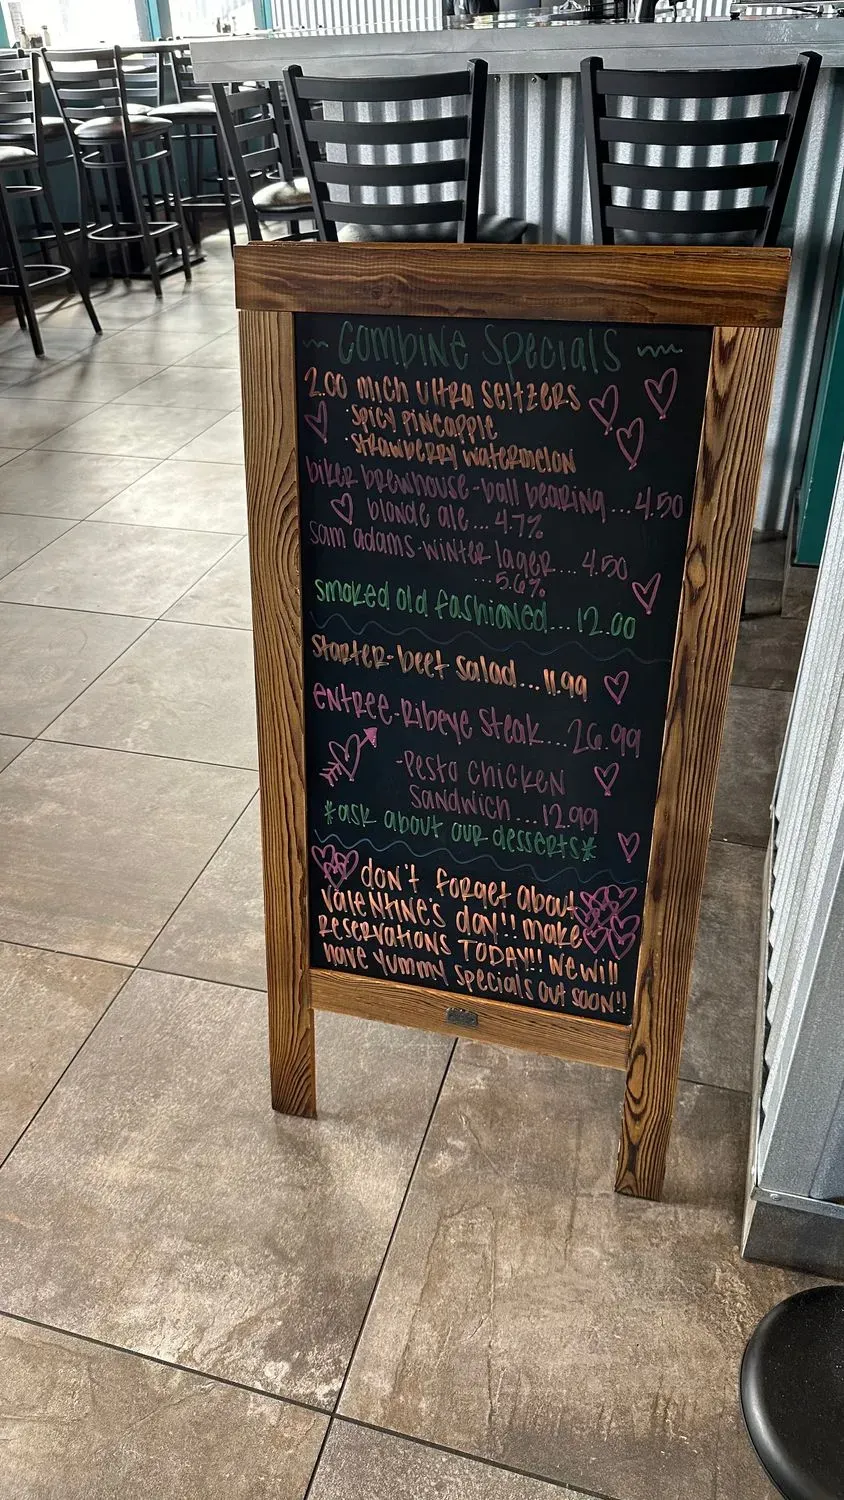 ~ COMBINE SPECIALS ~
2.00 MICH ULTRA SELTZERS
·SPICY PINEAPPLE
·STRAWBERRY WATERMELON
biker brewhouse-ball bearing...4.50
blonde ale...4.7%
sam adams-winter lager...4.50
...5.6%
smoked old fashioned...12.00
starter-beet salad...11.99
entree-Ribeye steak...26.99
-Pesto Chicken
Sandwich...12.99
*ask about our desserts*
don't forget about
Valentine's day!! make
reservations TODAY!! We will
have yummy specials out soon!!